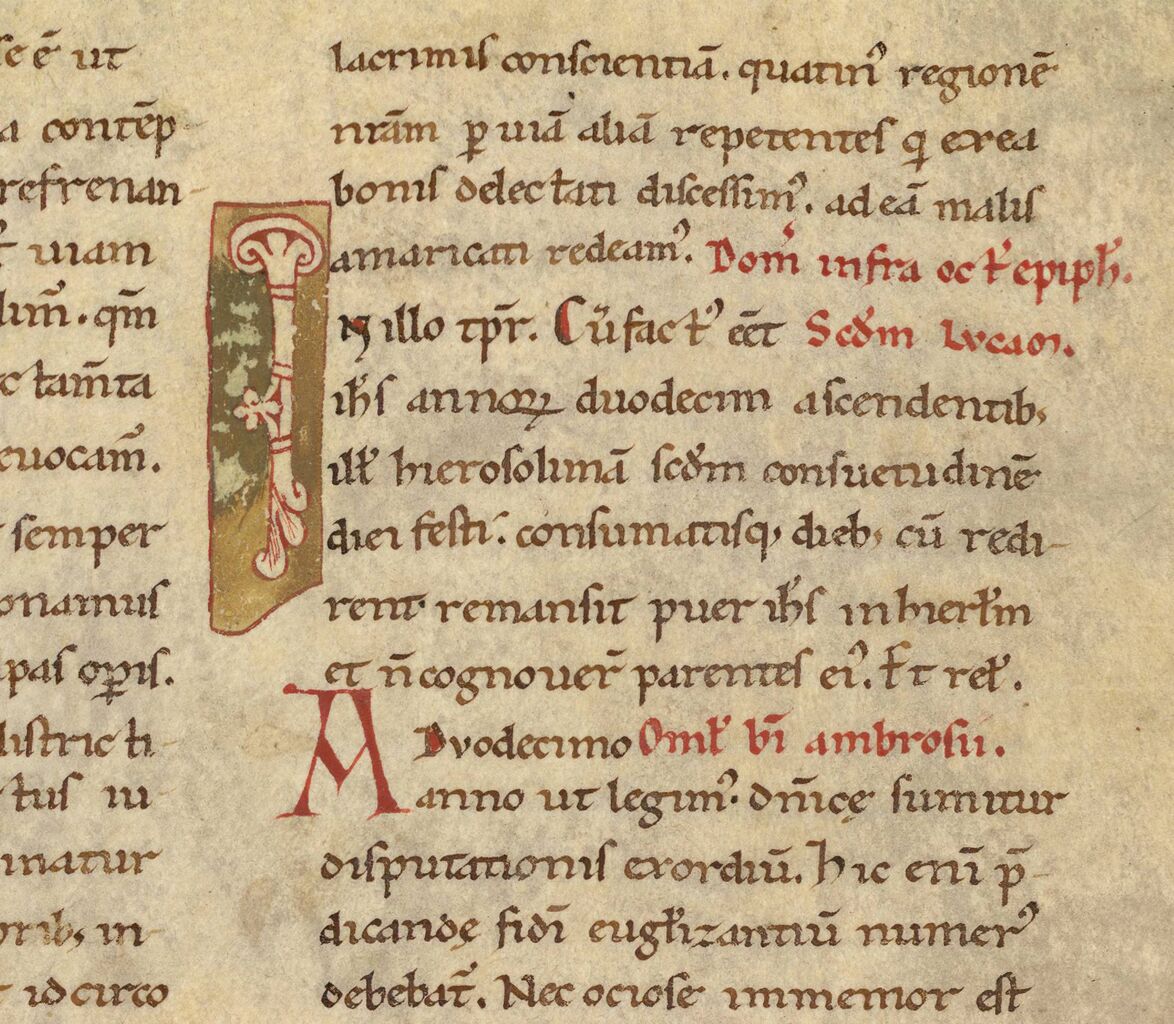 se ē ut
a contēp-
refrenan-
uiam
lim᷒. qm̄
c tam̄ta
euocam̄.
semper
onamus
pas oꝑis.
districti-
tus iu-
inatur
orib; in-
idcirco
lacrimis conscientiā. quatin᷒ regionē
nr̄am ꝑ uiā aliā repetentes q̇ erea
bonis delectati discessim᷒. ad eā malis
amaricati redeam᷒. Dom̄ infra oct̄ epiph̄.
IN illo tp̄r. Cū fact᷒ eēt Scd̄m Lucam.
ih̄s annoꝝ duodecim ascendentib;
ill̄ hierosolimā scd̄m consuetudinē
diei festi. consumatisq; dieb; cū redi-
rent remansit puer ih̄s in hierl̄m
et n̄ cognouer̄ parentes ei᷒. Et rel̄.
A Dvodecimo Oml̄ bi̅ ambrosii.
anno ut legim᷒. dn̄icę sumitur
disputationis exordiū. Hic eni̅ p̄-
dicandę fidi̅ eugl̄izantiū numer᷒
debebat̄. Nec ociose immemor est